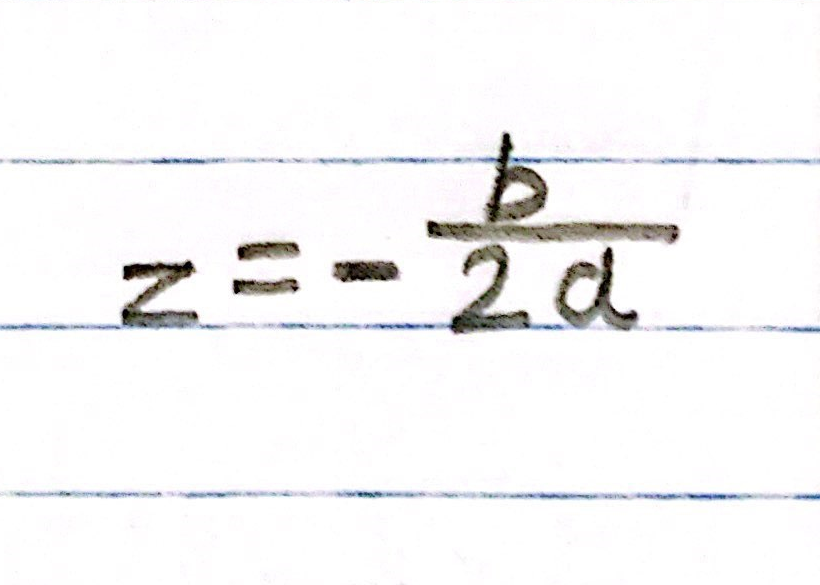 z = - b/2a